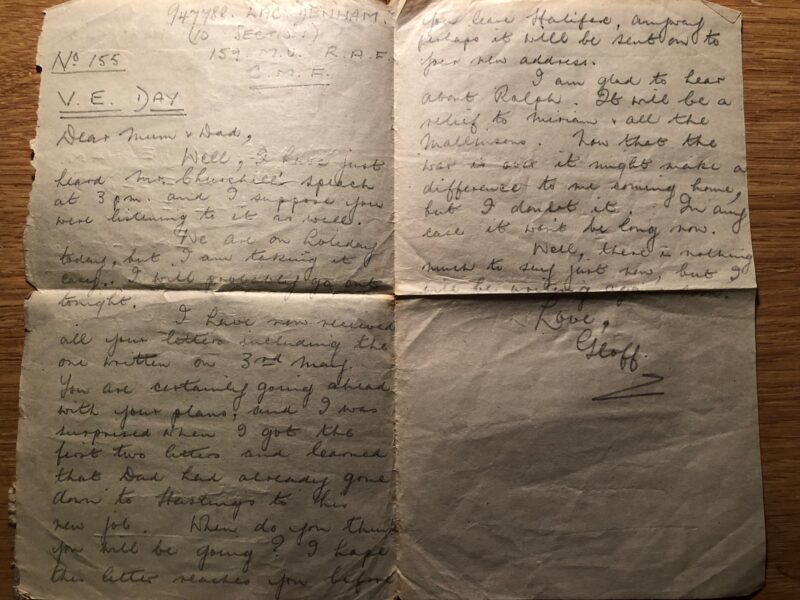 947788. LAC. DENHAM.
10 SECTION.
159 M.U. R.A.F.
C.M.F.
No 155
V. E. DAY
Dear Mum & Dad,
Well, I have just
heard Mr. Churchill's speach
at 3 p.m. and I suppose you
were listening to it as well.
We are on holiday
today, but I am taking it
easy. I will probably go out
tonight.
I have now received
all your letters including the
one written on 3rd May.
You are certainly going ahead
with your plans, and I was
surprised when I got the
first two letters and learned
that Dad had already gone
down to Hastings to his
new job. When do you think
you will be going? I hope
this letter reaches you before
you leave Halifax, anyway
perhaps it will be sent on to
your new address.
I am glad to hear
about Ralph. It will be a
relief to Miriam & all the
Now that the
war is over it might make a
difference to me coming home,
but I doubt it. In any
case it wont be long now.
Well, there is nothing
much to say just now, but I
will be writing again soon.
Love,
Geoff.